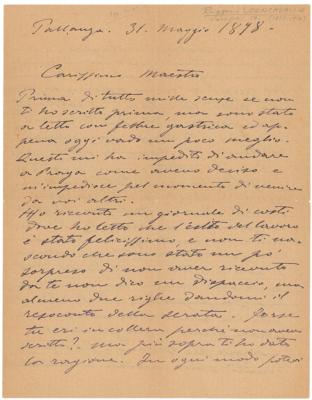 Ruggero LEONCAVALLO
Pallanza. 31. Maggio 1898.
Carissimo Maestro
Prima di tutto mille scuse se non
ti ho scritto prima, ma sono stato
a letto con febbre gastrica ed ap-
pena oggi vado un poco meglio.
Questo mi ha impedito di andare
a Praga come avevo deciso e
m'impedisce pel momento di venire
da voi altri.
Ho ricevuto un giornale di costì
dove ho letto che l'esito del lavoro
è stato felicissimo, e non ti na-
scondo che sono stato un po'
sorpreso di non aver ricevuto
da te non dico un dispaccio, ma
almeno due righe dandomi il
resoconto della serata. Forse
tu eri in collera perchè non avevo
scritto? Ma più sopra ti ho dato
la ragione. In ogni modo potevi